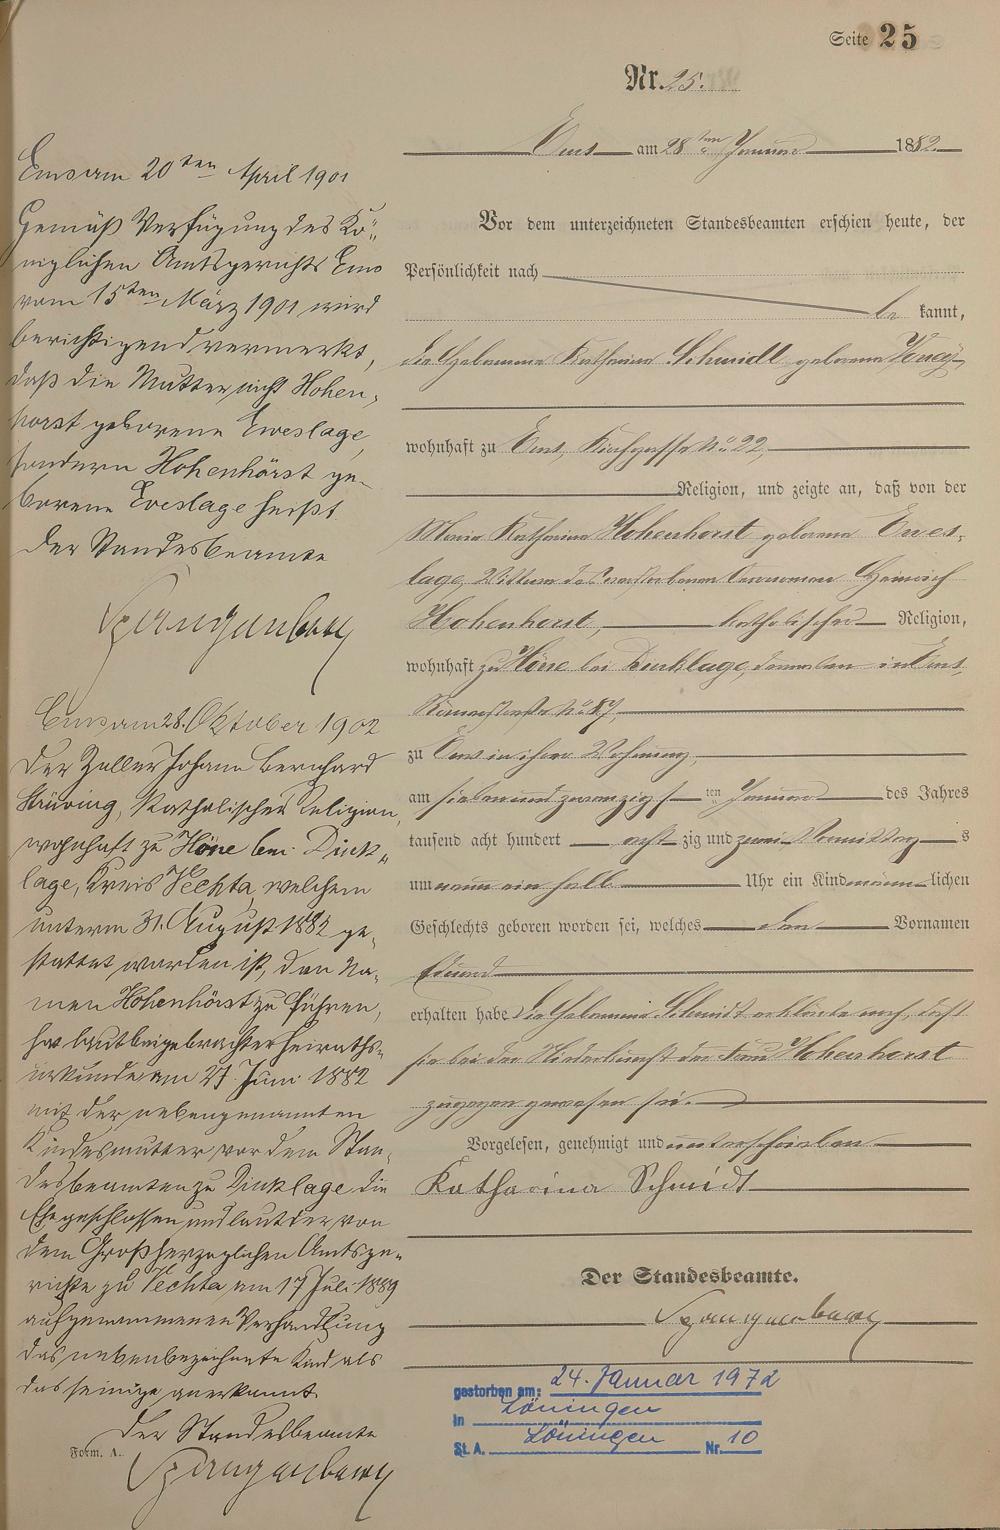 Seite 25
Nr. 25.
Ems am 28ten Januar 1882.
Vor dem unterzeichneten Standesbeamten erschien heute, der
Persönlichkeit nach
be kannt,
die Hebamme Katharina Schmidt geborene
wohnhaft zu Ems, Kirchgasse No 22,
Religion, und zeigte an, daß von der
Maria Katharina Hohenhorst geborene Ewes-
lage, Wittwe des verstorbenen Heinrich
Hohenhorst, katholischer Religion,
wohnhaft zu Höne bei Dinklage, in Ems,
No 87,
zu Ems in ihrer Wohnung,
am sieben und zwanzigsten Januar des Jahres
tausend acht hundert achtzig und zwei Vormittags
um neun ein halb Uhr ein Kind männlichen
Geschlechts geboren worden sei, welches den Vornamen
Eduard
erhalten habe. Die Hebamme Schmidt erklärte noch, daß
sie bei der Niederkunft der Frau Hohenhorst
zugegen gewesen sei.
Vorgelesen, genehmigt und unterschrieben
Katharina Schmidt
Der Standesbeamte.
Spangenberg
gestorben am: 24. Januar 1972
in Löningen
St. A. Löningen Nr. 10
Ems am 20ten April 1901
Gemäß Verfügung des Kö-
niglichen Amtsgerichts Ems
vom 15ten März 1901 wird
berichtigend vermerkt,
daß die Mutter nicht Hohen-
horst geborene Eweslage,
sondern Hohenhörst ge-
borene Eveslage heißt.
Der Standesbeamte
Spangenberg
Ems am 28. Oktober 1902
Der Zeller Johann Bernhard
katholischer Religion,
wohnhaft zu Höne bei Dink-
lage, Kreis Vechta, welchem
unterm 31. August 1882 ge-
stattet worden ist, den Na-
men Hohenhörst zu führen,
hat laut beigebrachter Heiraths-
urkunde am 27. Juni 1882
mit der nebengenannten
Kindesmutter vor dem Stan-
desbeamten zu Dinklage die
Ehe geschlossen und laut der von
dem Großherzoglichen Amtsge-
richte zu Vechta am 17 Juli 1889
aufgenommenen Verhandlung
das nebenbezeichnete Kind als
das seinige anerkannt.
Der Standesbeamte
Form. A.
Spangenberg